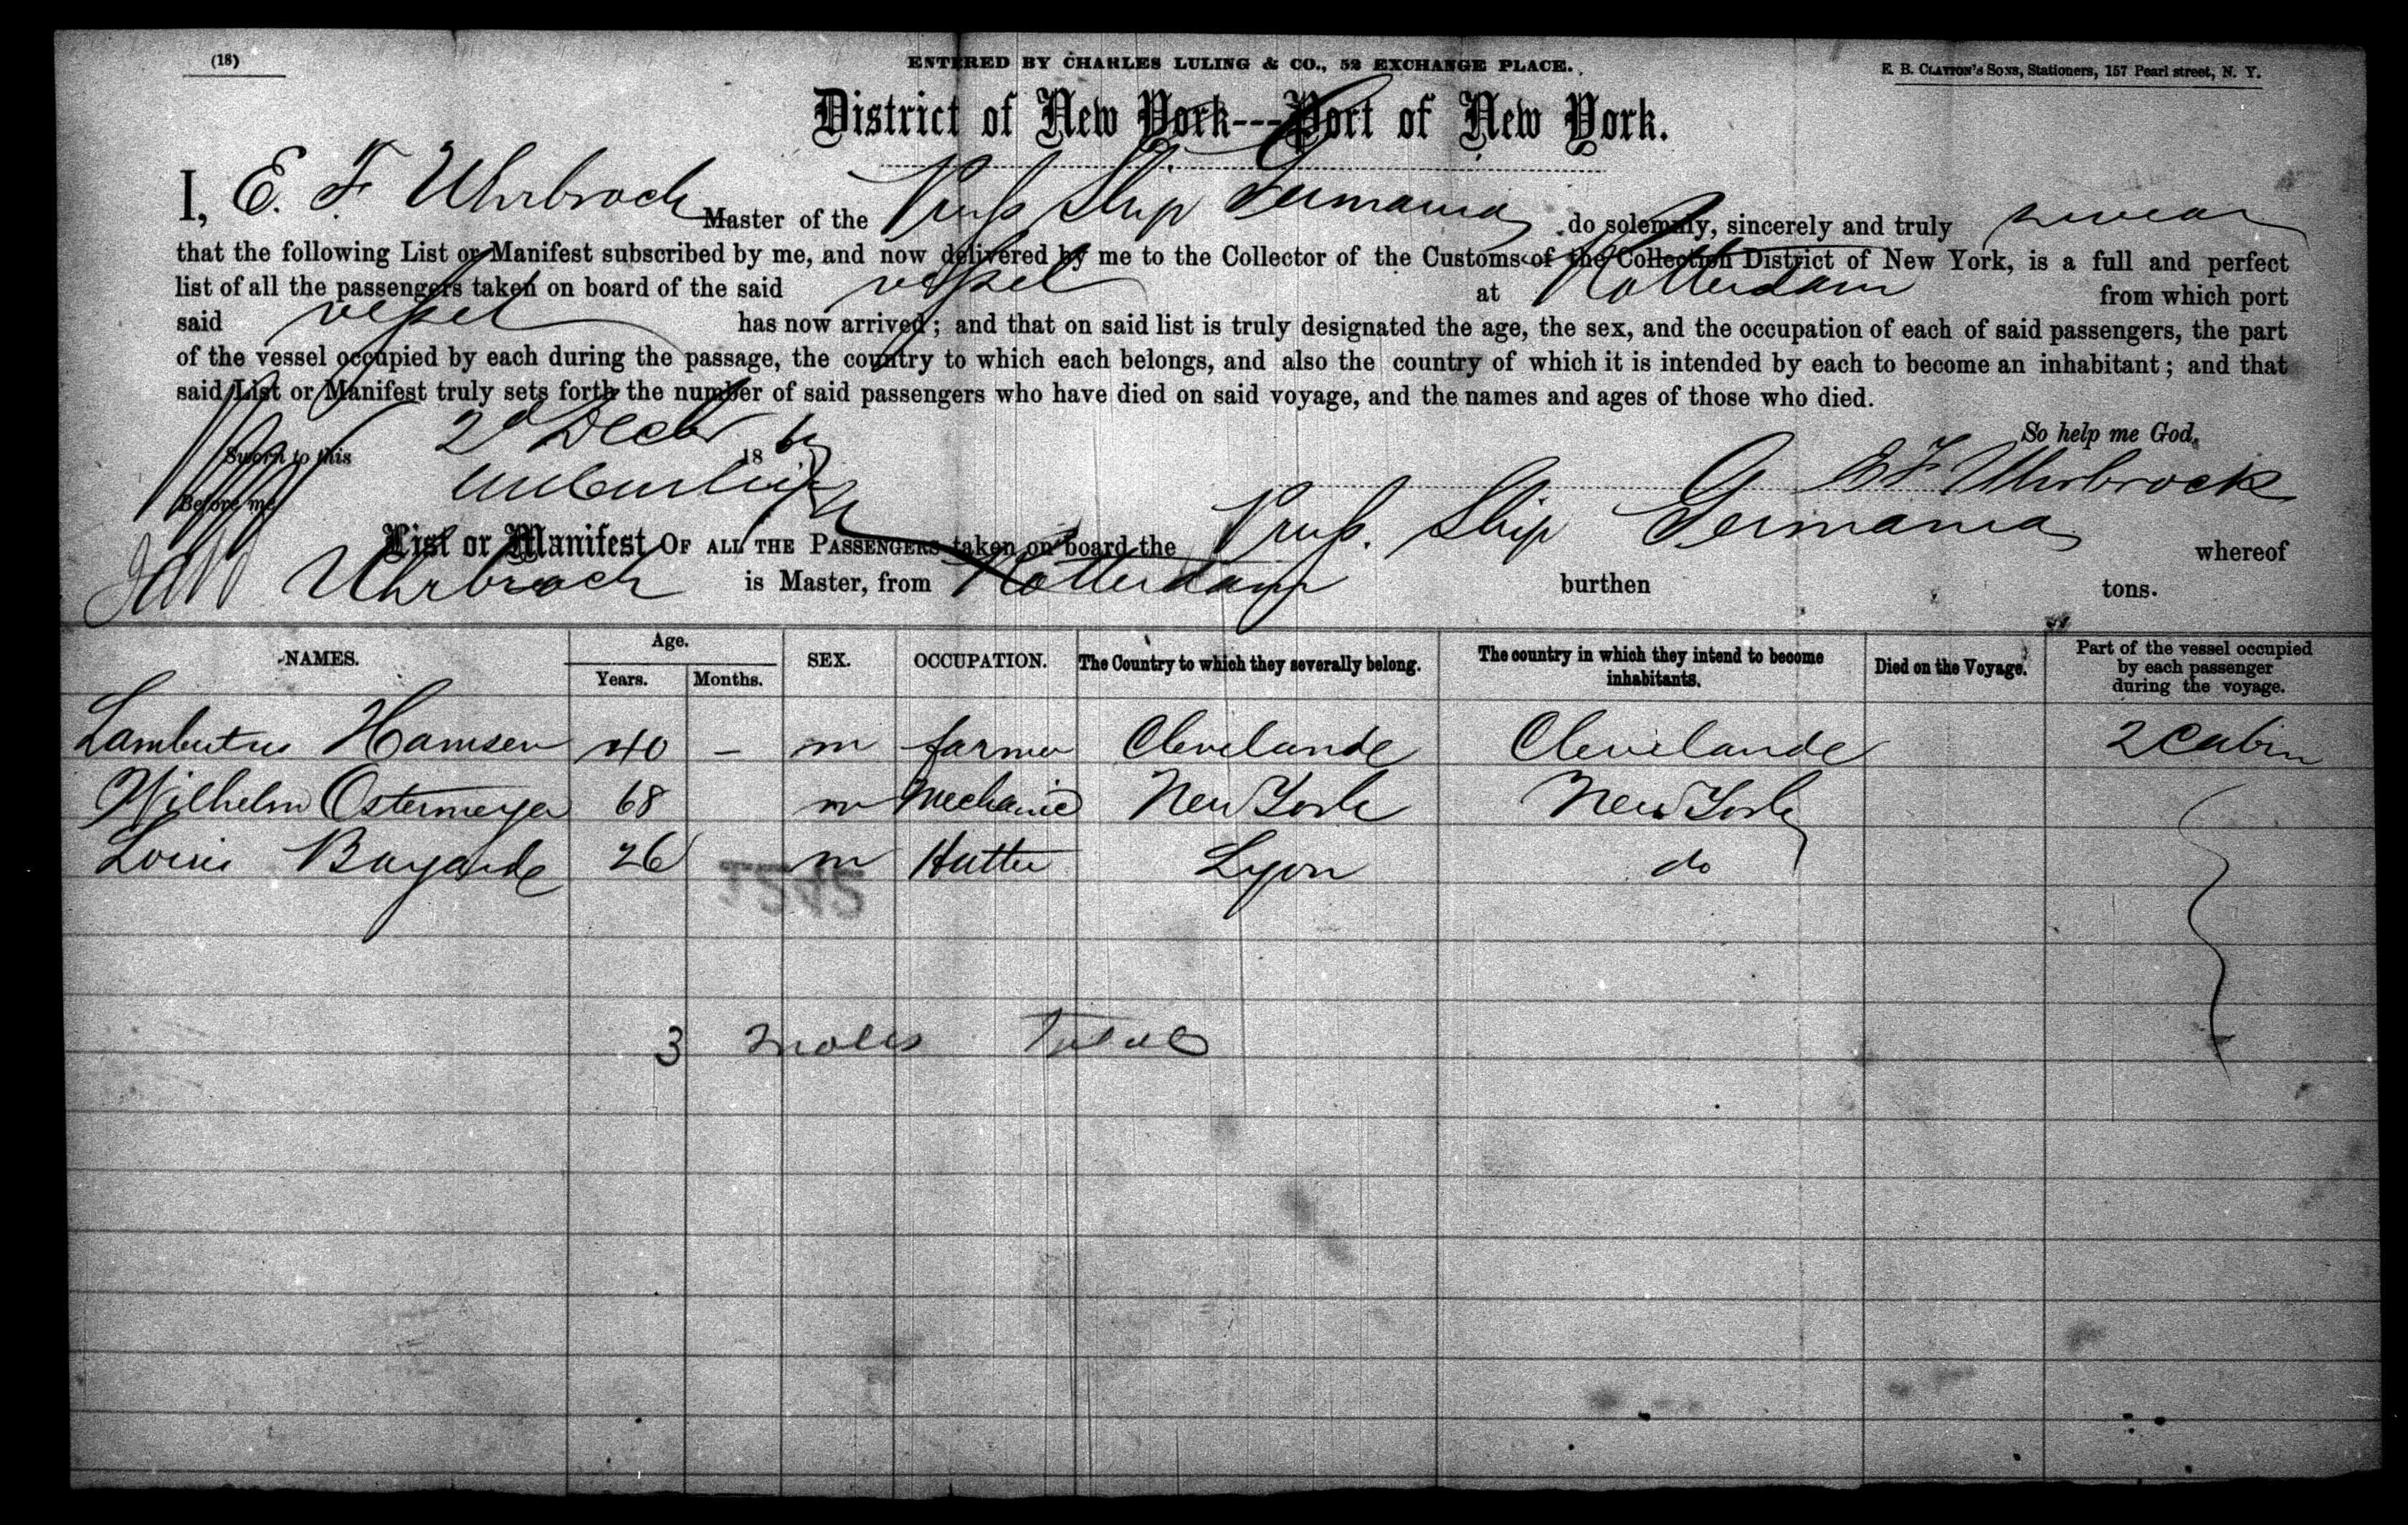 (18)
ENTERED BY CHARLES LULING & CO., 52 EXCHANGE PLACE.
E. B. CLAYTON'S SONS, Stationers, 157 Pearl street, N. Y.
District of New York---Port of New York.
I, E. F. Uhrbrock Master of the Pruss Ship Germania do solemnly, sincerely and truly swear
that the following List or Manifest subscribed by me, and now delivered by me to the Collector of the Customs of the Collection District of New York, is a full and perfect
list of all the passengers taken on board of the said vessel at Rotterdam from which port
said vessel has now arrived; and that on said list is truly designated the age, the sex, and the occupation of each of said passengers, the part
of the vessel occupied by each during the passage, the country to which each belongs, and also the country of which it is intended by each to become an inhabitant; and that
said List or Manifest truly sets forth the number of said passengers who have died on said voyage, and the names and ages of those who died.
So help me God,
Sworn to this 2d Decbr 18
E F Uhrbrock
Before me
List or Manifest OF ALL THE PASSENGERS taken on board the Pruss. Ship Germania whereof
Uhrbrock is Master, from Rotterdam burthen tons.
NAMES. Age. Years. Months. SEX. OCCUPATION. The Country to which they severally belong. The country in which they intend to become inhabitants. Died on the Voyage. Part of the vessel occupied by each passenger during the voyage.
Lambertus Hamsen 40 - m farmer Clevelande Clevelande 2 Cabin
Wilhelm Ostermeyer 68 m Mechanic New York New York
Louis Bayarde 26 m Hatter Lyon do
3 males Total